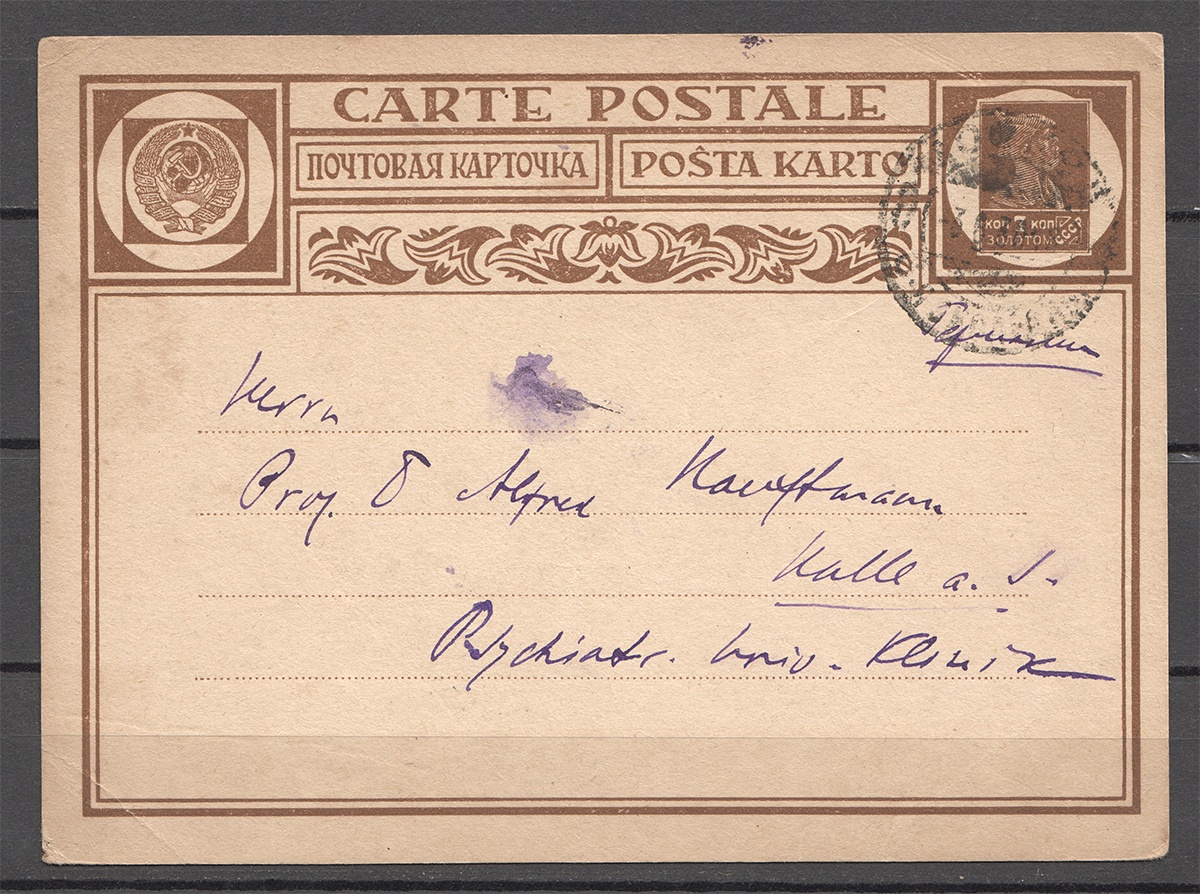 CARTE POSTALE
ПОЧТОВАЯ КАРТОЧКА
POŜTA KARTO
КОП 7 КОП
ЗОЛОТОМ
СССР
Германия
Herrn
Prof. D Alfred Hauptmann
Halle a. S.
Psychiatr. Univ. Klinik